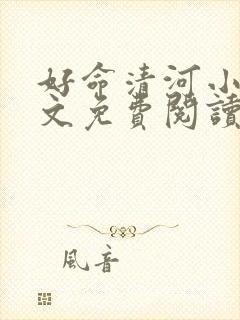 好命清河小
文免費閱讀
風音